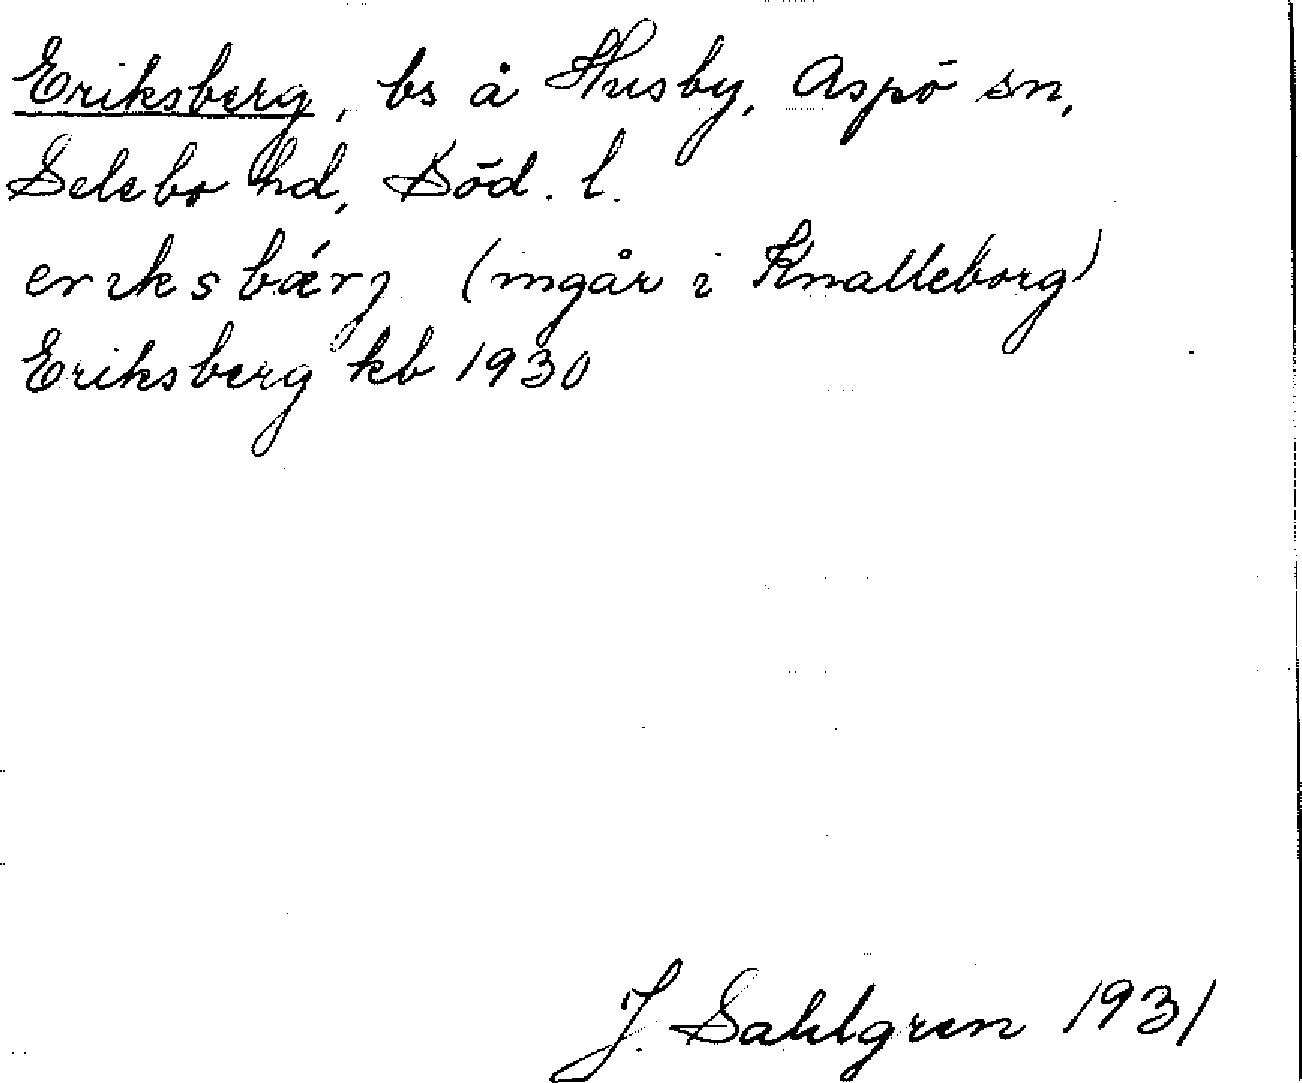 Eriksberg, bs å Husby, Aspö sn,
Selebo hd, Söd. l.
erıksbǽrj (ingår i Knalleborg)
Eriksberg kb 1930
J. Sahlgren 1931